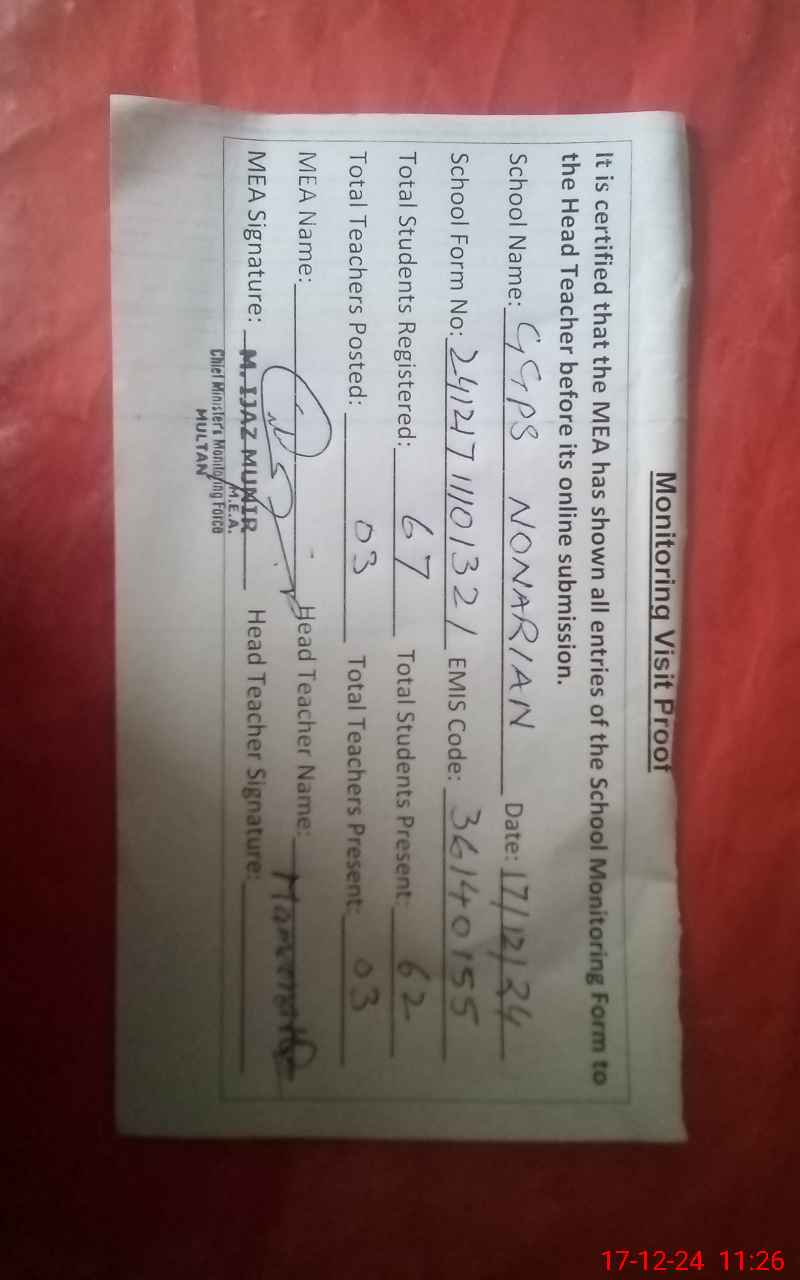 Monitoring Visit Proof
It is certified that the MEA has shown all entries of the School Monitoring Form to
the Head Teacher before its online submission.
School Name: GGPS NONARIAN Date: 17/12/24
School Form No: EMIS Code: 36140155
Total Students Registered: 67 Total Students Present: 62
Total Teachers Posted: 03 Total Teachers Present: 03
MEA Name: Head Teacher Name:
MEA Signature: M. IJAZ MUNIR Head Teacher Signature:
M.E.A.
Chief Minister's Monitoring Force
MULTAN
17-12-24 11:26